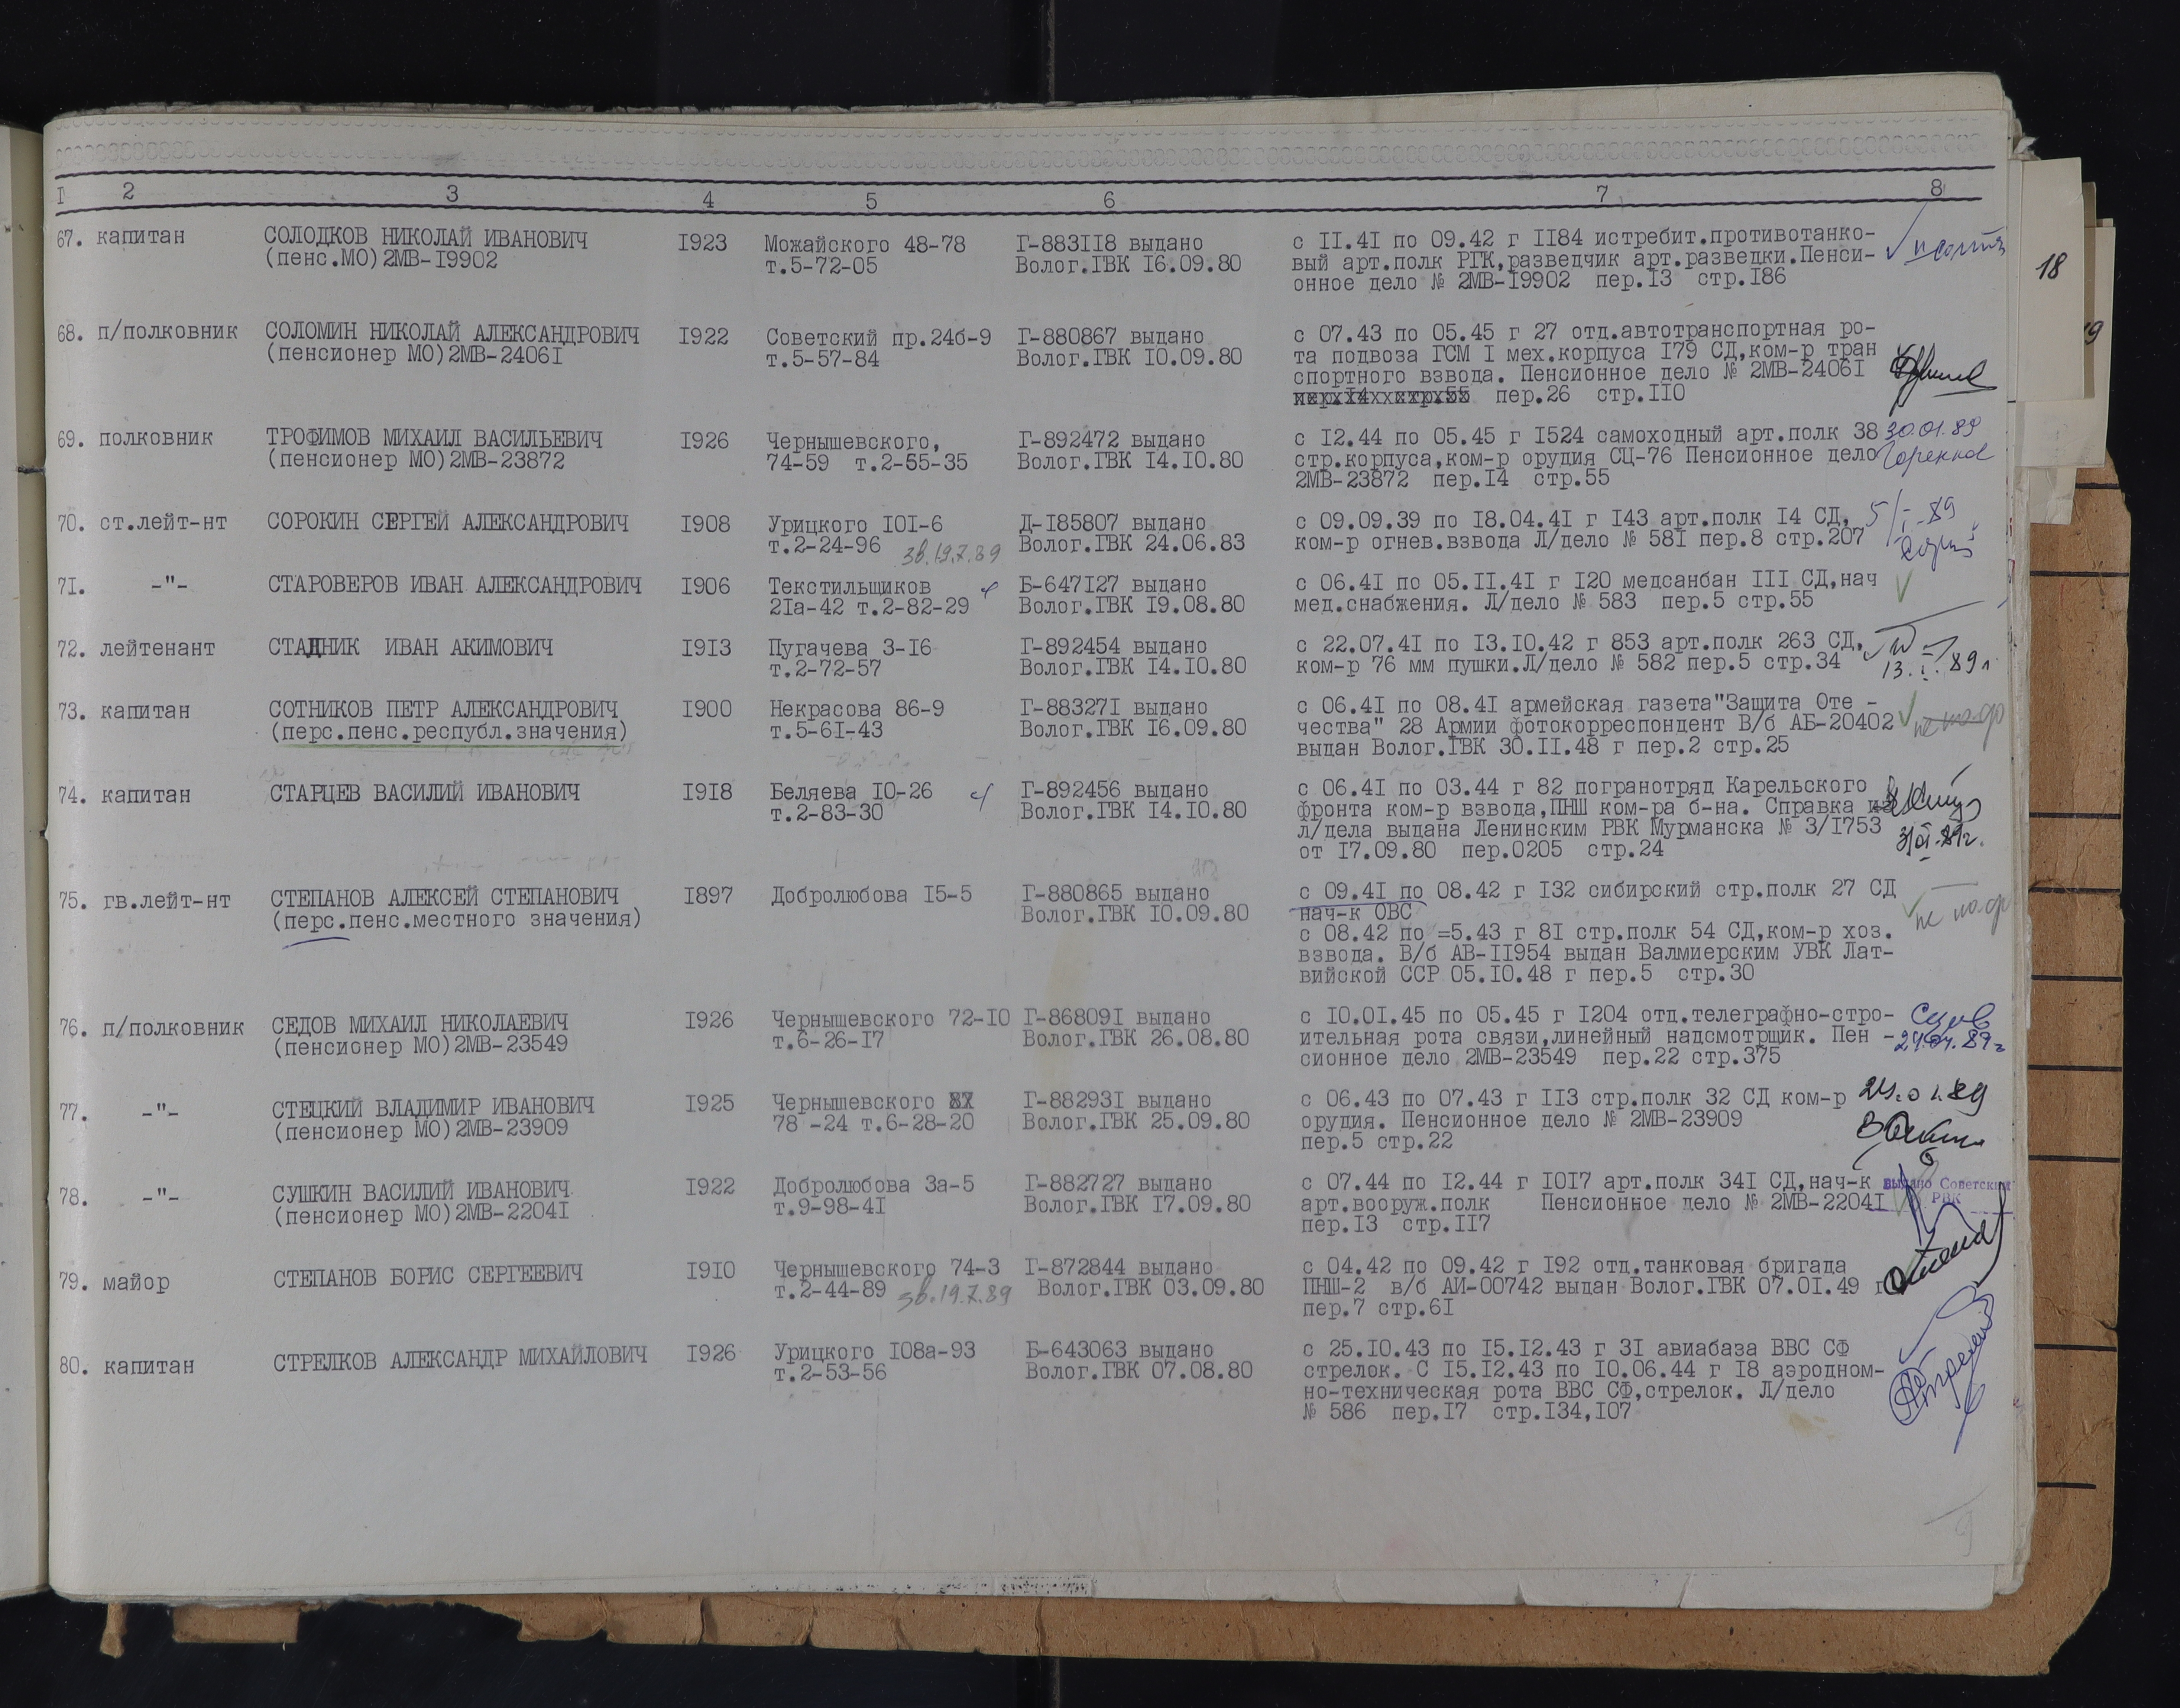 I 2 3 4 5 6 7 8
67. капитан СОЛОДКОВ НИКОЛАЙ ИВАНОВИЧ I923 Можайского 48-78 Г-883II8 выдано с II.4I по 09.42 г II84 истребит.противотанко-
(пенс.МО)2МВ-I9902 т.5-72-05 Волог.ГВК I6.09.80 вый арт.полк РГК,разведчик арт.разведки.Пенси-
онное дело № 2МВ-I9902 пер.I3 стр.I86
68. п/полковник СОЛОМИН НИКОЛАЙ АЛЕКСАНДРОВИЧ I922 Советский пр.24б-9 Г-880867 выдано с 07.43 по 05.45 г 27 отд.автотранспортная ро-
(пенсионер МО)2МВ-2406I т.5-57-84 Волог.ГВК I0.09.80 та подвоза ГСМ I мех.корпуса I79 СД,ком-р тран
спортного взвода. Пенсионное дело № 2МВ-2406I
пер.26 стр.II0
69. полковник ТРОФИМОВ МИХАИЛ ВАСИЛЬЕВИЧ I926 Чернышевского, Г-892472 выдано с I2.44 по 05.45 г I524 самоходный арт.полк 38 30.01.89
(пенсионер МО)2МВ-23872 74-59 т.2-55-35 Волог.ГВК I4.I0.80 стр.корпуса,ком-р орудия СЦ-76 Пенсионное дело
2МВ-23872 пер.I4 стр.55
70. ст.лейт-нт СОРОКИН СЕРГЕЙ АЛЕКСАНДРОВИЧ I908 Урицкого I0I-6 Д-I85807 выдано с 09.09.39 по I8.04.4I г I43 арт.полк I4 СД, 5/I-89
т.2-24-96 зв.19.7.89 Волог.ГВК 24.06.83 ком-р огнев.взвода Л/дело № 58I пер.8 стр.207
7I. -"- СТАРОВЕРОВ ИВАН АЛЕКСАНДРОВИЧ I906 Текстильщиков Б-647I27 выдано с 06.4I по 05.II.4I г I20 медсанбан III СД,нач
2Iа-42 т.2-82-29 Волог.ГВК I9.08.80 мед.снабжения. Л/дело № 583 пер.5 стр.55
72. лейтенант СТАДНИК ИВАН АКИМОВИЧ I9I3 Пугачева 3-I6 Г-892454 выдано с 22.07.4I по I3.I0.42 г 853 арт.полк 263 СД,
т.2-72-57 Волог.ГВК I4.I0.80 ком-р 76 мм пушки.Л/дело № 582 пер.5 стр.34 13.I.89г
73. капитан СОТНИКОВ ПЕТР АЛЕКСАНДРОВИЧ I900 Некрасова 86-9 Г-88327I выдано с 06.4I по 08.4I армейская газета"Защита Оте -
(перс.пенс.республ.значения) т.5-6I-43 Волог.ГВК I6.09.80 чества" 28 Армии фотокорреспондент В/б АБ-20402
выдан Волог.ГВК 30.II.48 г пер.2 стр.25
74. капитан СТАРЦЕВ ВАСИЛИЙ ИВАНОВИЧ I9I8 Беляева I0-26 Г-892456 выдано с 06.4I по 03.44 г 82 погранотряд Карельского
т.2-83-30 Волог.ГВК I4.I0.80 фронта ком-р взвода,ПНШ ком-ра б-на. Справка из
л/дела выдана Ленинским РВК Мурманска № 3/I753
от I7.09.80 пер.0205 стр.24
75. гв.лейт-нт СТЕПАНОВ АЛЕКСЕЙ СТЕПАНОВИЧ I897 Добролюбова I5-5 Г-880865 выдано с 09.4I по 08.42 г I32 сибирский стр.полк 27 СД
(перс.пенс.местного значения) Волог.ГВК I0.09.80 нач-к ОВС
с 08.42 по =5.43 г 8I стр.полк 54 СД,ком-р хоз.
взвода. В/б АВ-II954 выдан Валмиерским УВК Лат-
вийской ССР 05.I0.48 г пер.5 стр.30
76. п/полковник СЕДОВ МИХАИЛ НИКОЛАЕВИЧ I926 Чернышевского 72-I0 Г-86809I выдано с I0.0I.45 по 05.45 г I204 отд.телеграфно-стро-
(пенсионер МО)2МВ-23549 т.6-26-I7 Волог.ГВК 26.08.80 ительная рота связи,линейный надсмотрщик. Пен -
сионное дело 2МВ-23549 пер.22 стр.375
77. -"- СТЕЦКИЙ ВЛАДИМИР ИВАНОВИЧ I925 Чернышевского Г-88293I выдано с 06.43 по 07.43 г II3 стр.полк 32 СД ком-р 24.01.89
(пенсионер МО)2МВ-23909 78 -24 т.6-28-20 Волог.ГВК 25.09.80 орудия. Пенсионное дело № 2МВ-23909
пер.5 стр.22
78. -"- СУШКИН ВАСИЛИЙ ИВАНОВИЧ I922 Добролюбова 3а-5 Г-882727 выдано с 07.44 по I2.44 г I0I7 арт.полк 34I СД,нач-к выдано Советским
(пенсионер МО)2МВ-2204I т.9-98-4I Волог.ГВК I7.09.80 арт.вооруж.полк Пенсионное дело № 2МВ-2204I РВК
пер.I3 стр.II7
79. майор СТЕПАНОВ БОРИС СЕРГЕЕВИЧ I9I0 Чернышевского 74-3 Г-872844 выдано с 04.42 по 09.42 г I92 отд.танковая бригада
т.2-44-89 зв.19.7.89 Волог.ГВК 03.09.80 ПНШ-2 в/б АИ-00742 выдан Волог.ГВК 07.0I.49 г
пер.7 стр.6I
80. капитан СТРЕЛКОВ АЛЕКСАНДР МИХАЙЛОВИЧ I926 Урицкого I08а-93 Б-643063 выдано с 25.I0.43 по I5.I2.43 г 3I авиабаза ВВС СФ
т.2-53-56 Волог.ГВК 07.08.80 стрелок. С I5.I2.43 по I0.06.44 г I8 аэродном-
но-техническая рота ВВС СФ,стрелок. Л/дело
№ 586 пер.I7 стр.I34,I07
18